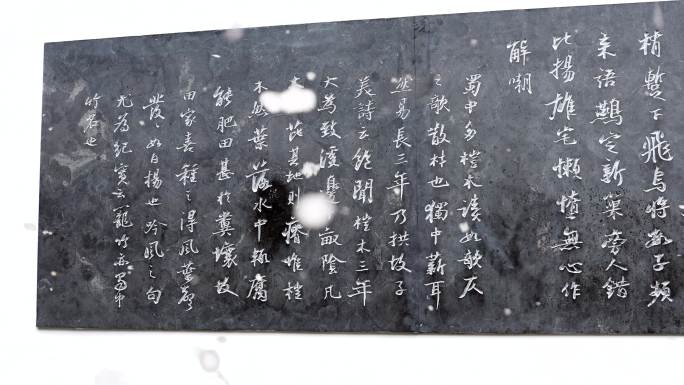 梢暫下飛烏將數子頻
來語鷰定新巢旁人錯
比揚雄宅懶惰無心作
解嘲
蜀中多榿木讀如欹仄
之欹散材也獨中薪耳
然易長三年乃拱故子
美詩云飽聞榿木三年
大為致溪邊十畝陰凡
木所芘其地則瘠惟榿
不然葉落水中輒腐
能肥田甚於糞壤故
田家喜種之得風葉聲
發發如白楊也吟風之句
尤為紀實云籠竹亦蜀中
竹名也